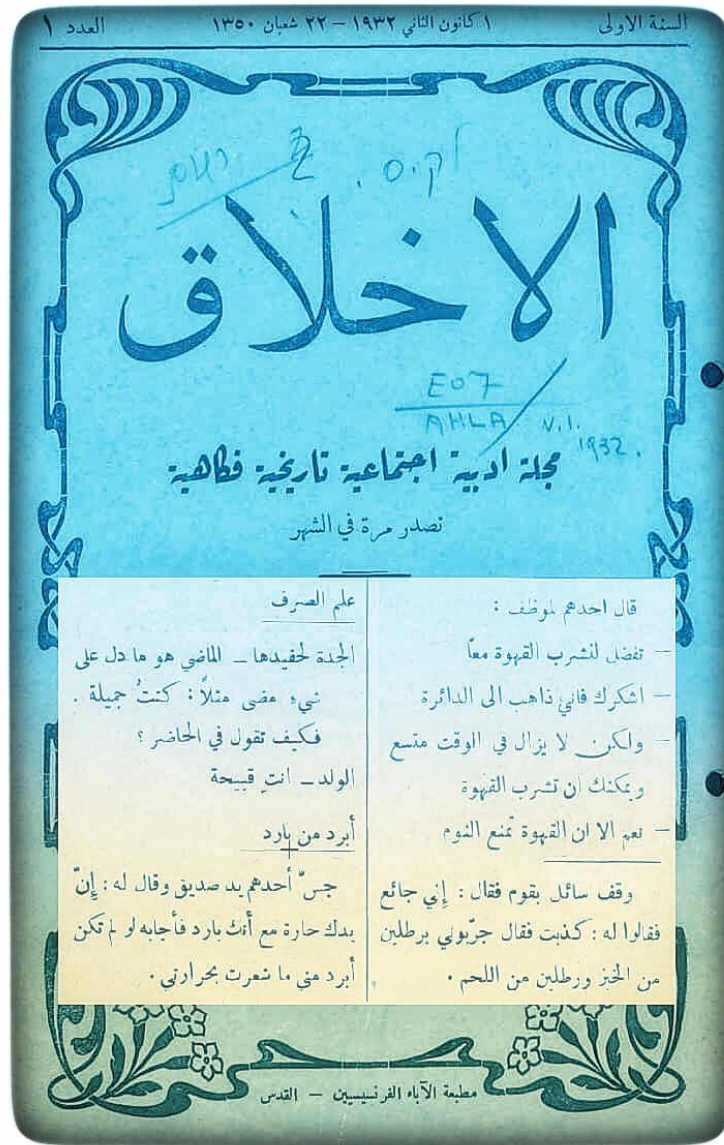 السنة الاولى ١ كانون الثاني ١٩٣٢ – ٢٢ شعبان ١٣٥٠ العدد ١
الاخلاق
E07
AHLA/ V.1.
1932.
مجلة ادبية اجتماعية تاريخية فكاهية
تصدر مرة في الشهر
قال احدهم لموظف :
– تفضل لنشرب القهوة معاً
– اشكرك فاني ذاهب الى الدائرة
– ولكن لا يزال في الوقت متسع
ويمكنك ان تشرب القهوة
– نعم الا ان القهوة تمنع النوم
وقف سائل بقوم فقال : إني جائع
فقالوا له : كذبت فقال جرّبوني برطلين
من الخبز ورطلين من اللحم .
علم الصرف
الجدة لحفيدها – الماضي هو ما دل على
شيء مضى مثلاً : كنتُ جميلة .
فكيف تقول في الحاضر ؟
الولد – انتِ قبيحة
أبرد من بارد
جسّ أحدهم يد صديق وقال له : إنّ
يدك حارة مع أنك بارد فأجابه لو لم تكن
أبرد مني ما شعرت بحرارتي .
مطبعة الآباء الفرنسيسيين – القدس